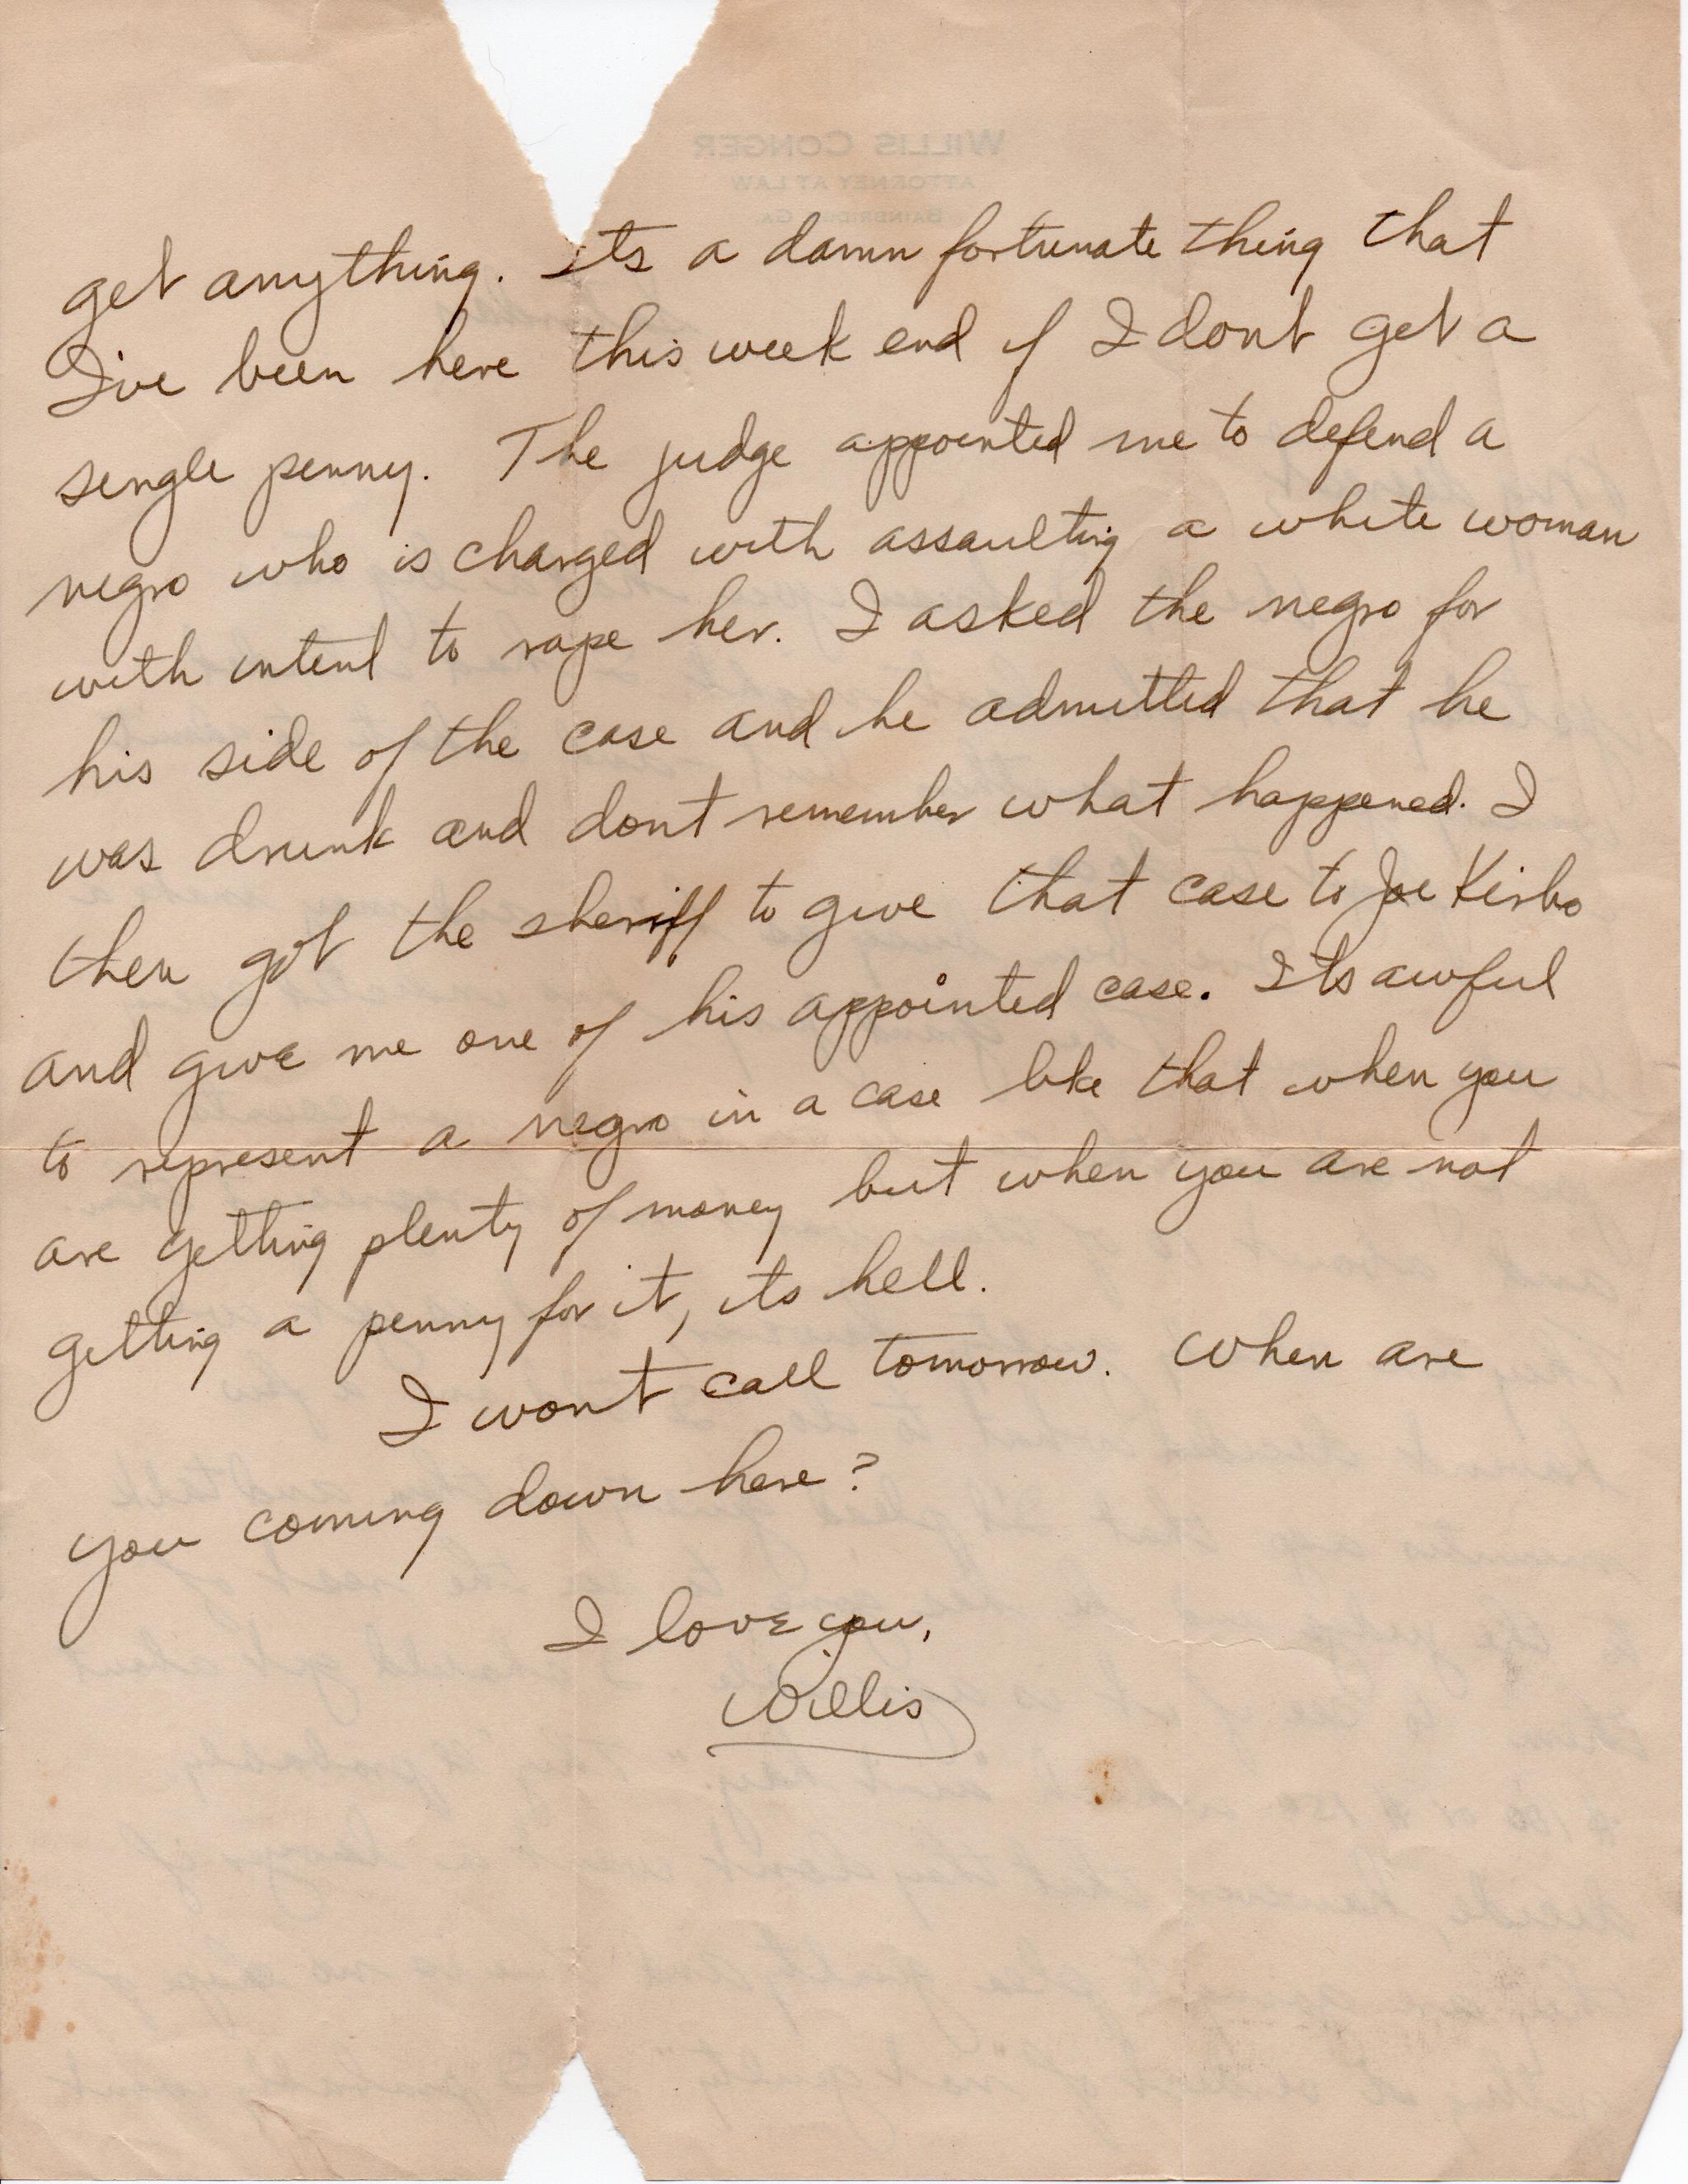 WILLIS CONGER
ATTORNEY AT LAW
BAINBRIDGE, GA.
get anything. Its a damn fortunate thing that
I've been here this week end if I dont get a
single penny. The judge appointed me to defend a
negro who is charged with assaulting a white woman
with intent to rape her. I asked the negro for
his side of the case and he admitted that he
was drunk and dont remember what happened. I
then got the sheriff to give that case to Joe Kirbo
and give me one of his appointed case. Its awful
to represent a negro in a case like that when you
are getting plenty of money but when you are not
getting a penny for it, its hell.
I wont call tomorrow. When are
you coming down here?
I love you,
Willis